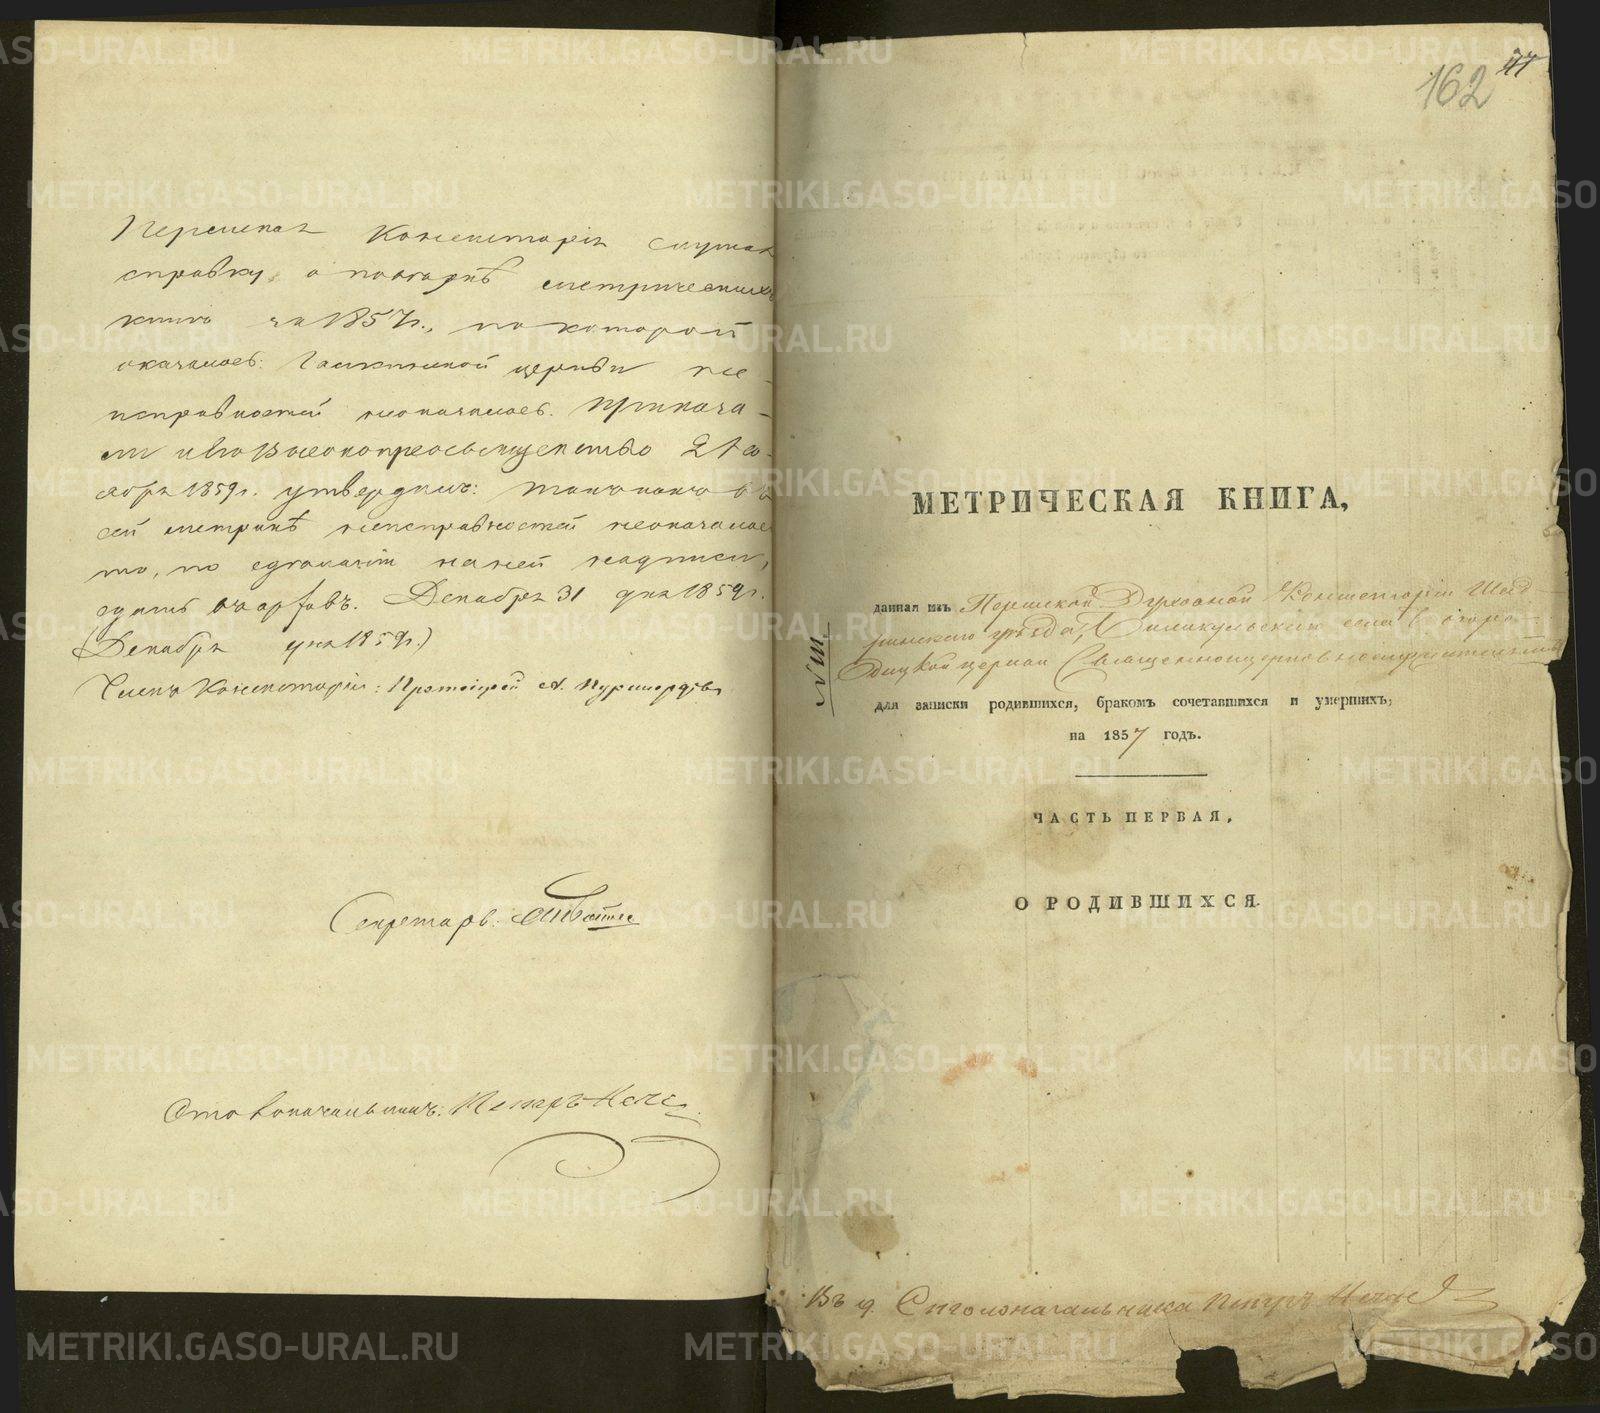 Пермская Консисторія слушав
справку, о повѣркѣ метрическихъ
книгъ за 1857 г., по которой
оказалось: церкви не-
исправностей неоказалось. Приказа-
ли и Его Высокопреосвященство 21
ября 1859 г. утвердилъ: такъ какъ въ
сей метрикѣ неисправностей неоказалось
то, по надписи,
сдать въ архивъ. Декабря 31 дня 1859 г.
(Декабря дня 1859 г.)
Членъ Консисторіи: Протоіерей А.
Секретарь:
Столоначальникъ: Петръ
162
47
МЕТРИЧЕСКАЯ КНИГА,
данная изъ Пермской Духовной Консисторіи Шад-
ринскаго уѣзда, села Богоро-
дицкой церкви Священноцерковнослужителямъ
для записки родившихся, бракомъ сочетавшихся и умершихъ,
на 1857 годъ.
ЧАСТЬ ПЕРВАЯ,
О РОДИВШИХСЯ.
Въ д. Столоначальника Петръ
METRIKI.GASO-URAL.RU